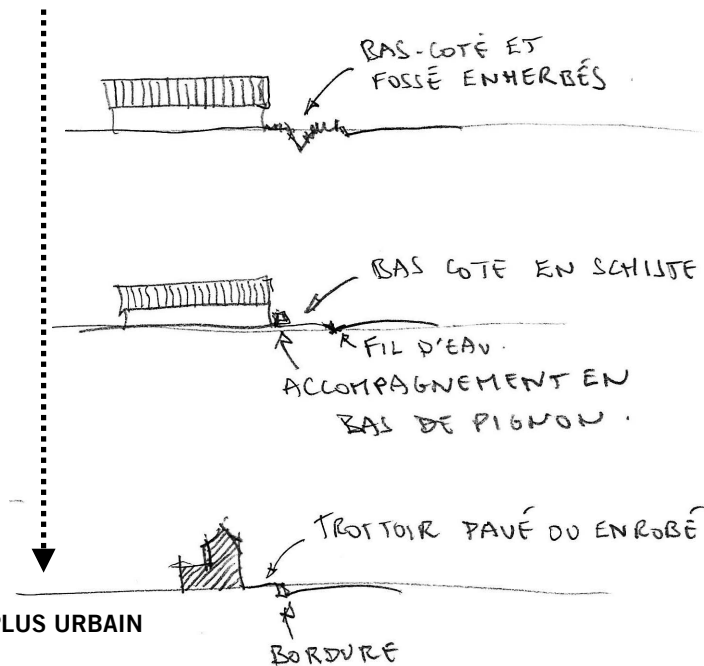 BAS-COTÉ ET
FOSSÉ ENHERBÉS
BAS COTE EN SCHISTE
FIL D'EAU.
ACCOMPAGNEMENT EN
BAS DE PIGNON.
TROTTOIR PAVÉ OU ENROBÉ
PLUS URBAIN
BORDURE